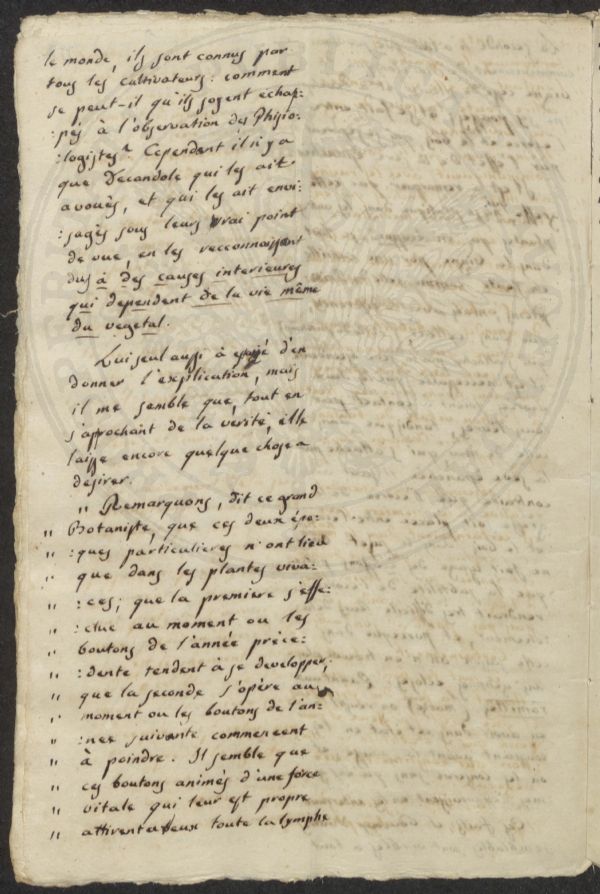 le monde, ils sont connus par
tous les cultivateurs: comment
se peut-il qu'ils soyent échap:
:pés à l'observation des Phisio:
:logistes? Cependant il n'y a
que Decandole qui les ait
avoués, et qui les ait envi:
:sagés sous leurs vrai point
de vue, en les reconnoissant
dus à des causes interieures
qui dependent de la vie même
du vegetal.
Lui seul aussi à essayé d'en
donner l'explication, mais
il me semble que, tout en
s'approchant de la verité, elle
laisse encore quelque chose a
désirer.
" Remarquons, dit ce grand
" Botaniste, que ces deux épo:
" :ques particulieres n'ont lieu
" que dans les plantes viva:
" :ces; que la premiere s'effe:
" :ctue au moment ou les
" boutons de l'année préce:
" :dente tendent à se developper,
" que la seconde s'opère au
" moment ou les boutons de l'an:
" :nee suivante commencent
" à poindre. Il semble que
" ces boutons animés d'une force
" vitale qui leur est propre
" attirent a eux toute la lymphe